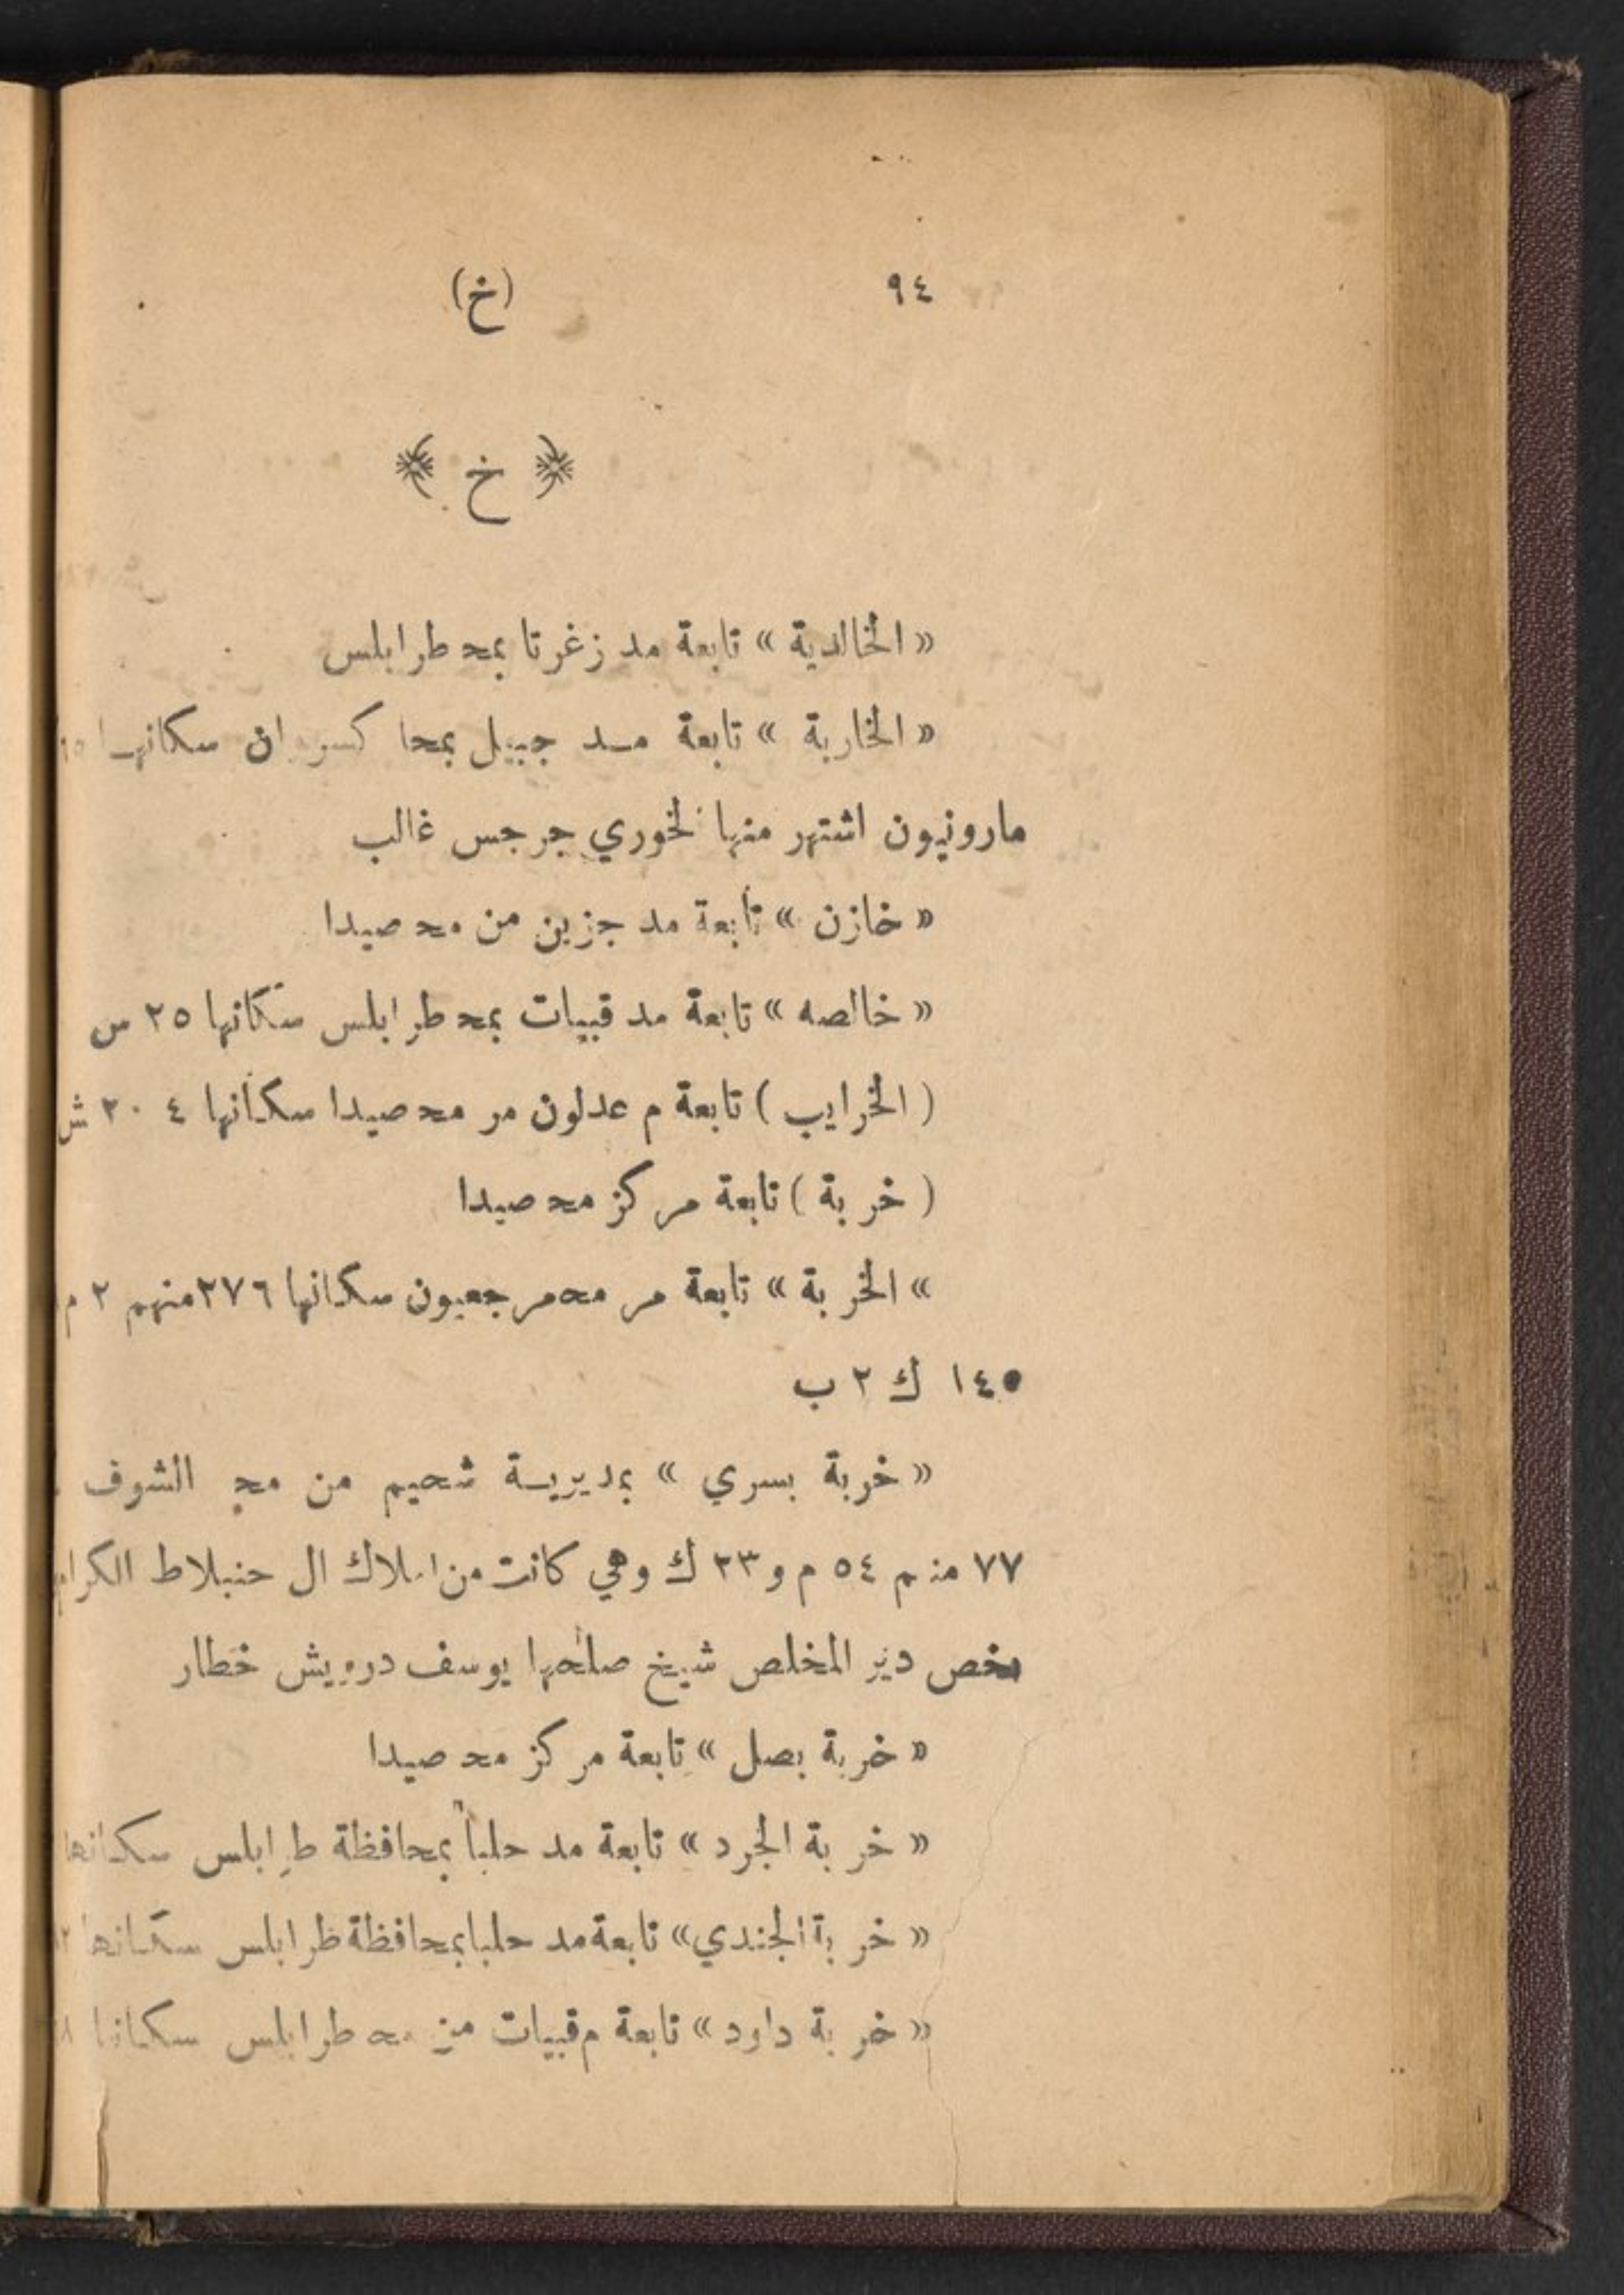 ٩٤ (خ)
﴿ خ ﴾
« الخالدية » تابعة مد زغرتا بمحـ طرابلس
« الخاربة » تابعة مـد جبيل بمحا كسروان سكانها
مارونيون اشتهر منها لخوري جرجس غالب
« خازن » تابعة مد جزين من محـ صيدا
« خالصه » تابعة مد قبيات بمحـ طرابلس سكانها ٢٥ س
( الخرايب ) تابعة م عدلون مر محـ صيدا سكانها ٢٠٤ ش
( خربة ) تابعة مركز محـ صيدا
» الخربة « تابعة مر محـ مرجعيون سكانها ٢٧٦ منهم ٢ م
١٤٥ ك ٢ ب
« خربة بسري » بمديريـة شحيم من محـ الشوف
٧٧ منهم ٥٤ م و ٢٣ ك وهي كانت من املاك ال جنبلاط الكرام
يخص دير المخلص شيخ صلحها يوسف درويش خطار
« خربة بصل » تابعة مركز محـ صيدا
« خربة الجرد » تابعة مد حلبا بمحافظة طرابلس سكانها
« خربة الجندي » تابعة مد حلبا بمحافظة طرابلس سكانها
« خربة داود » تابعة م قبيات من محـ طرابلس سكانها